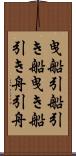 曳船引船引
き船曳き船
引き舟引舟